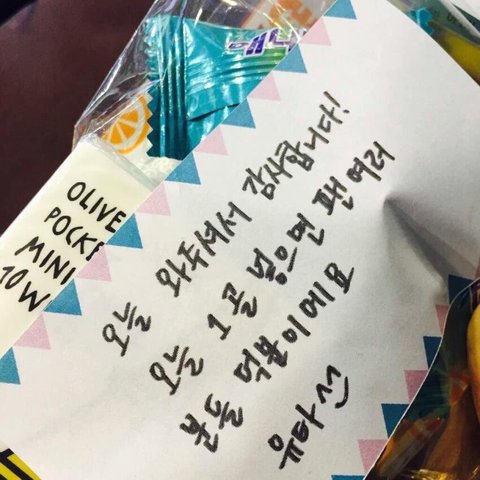 OLIVE
MINI
오늘 와주셔서 감사합니다!
오늘 1골 넣으면 팬 여러
분들 덕분이에요
유타